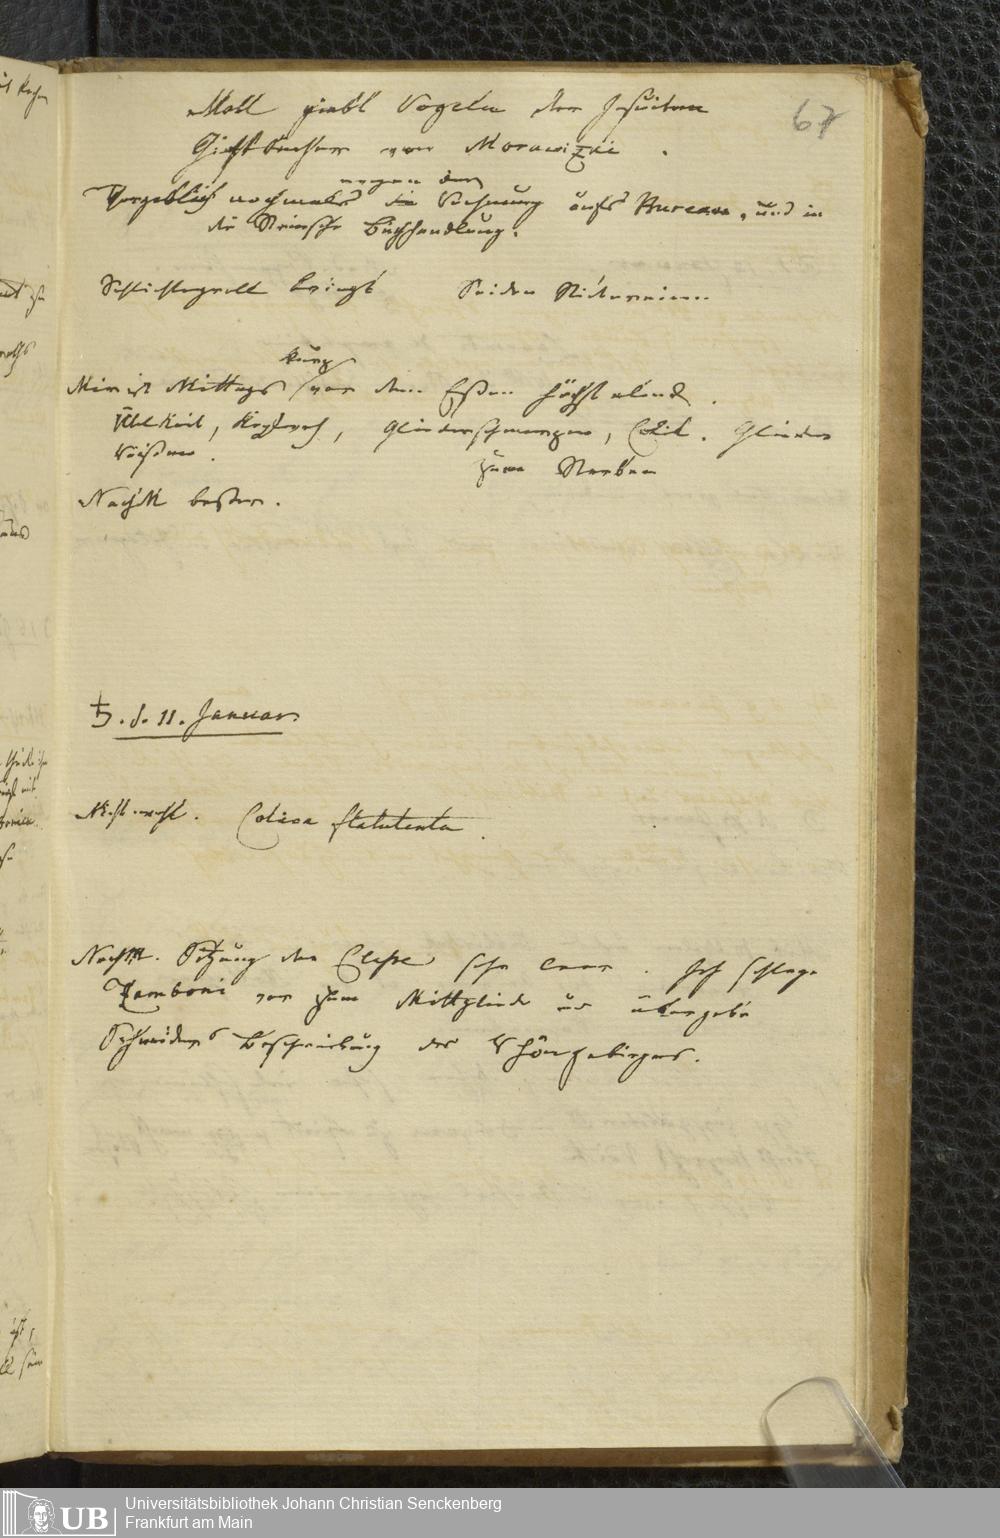 67
Moll giebt Vogeln der Jesuiten
Gichtbecher von Morawizki.
wegen der
Vergeblich nochmals die Rechnung aufs Bureau, und in
die Steinische Buchhandlung.
Schlichtegroll bringt Seiden
kurz
Mir ist Mittags vor dem Eßen höchst elend.
Übelkeit, Kopfweh, Gliederschmerzen, Colik. Glieder
reißen. zum Sterben
Nachts besser.
♄. d. 11. Januar.
Colica flatulenta
Nachm. Sitzung der Classe sehr leer. Ich schlage
Tamboni vor zum Mittglied und übergebe
Schneiders Beschreibung des Rhöngebirges.
UB
Universitätsbibliothek Johann Christian Senckenberg
Frankfurt am Main